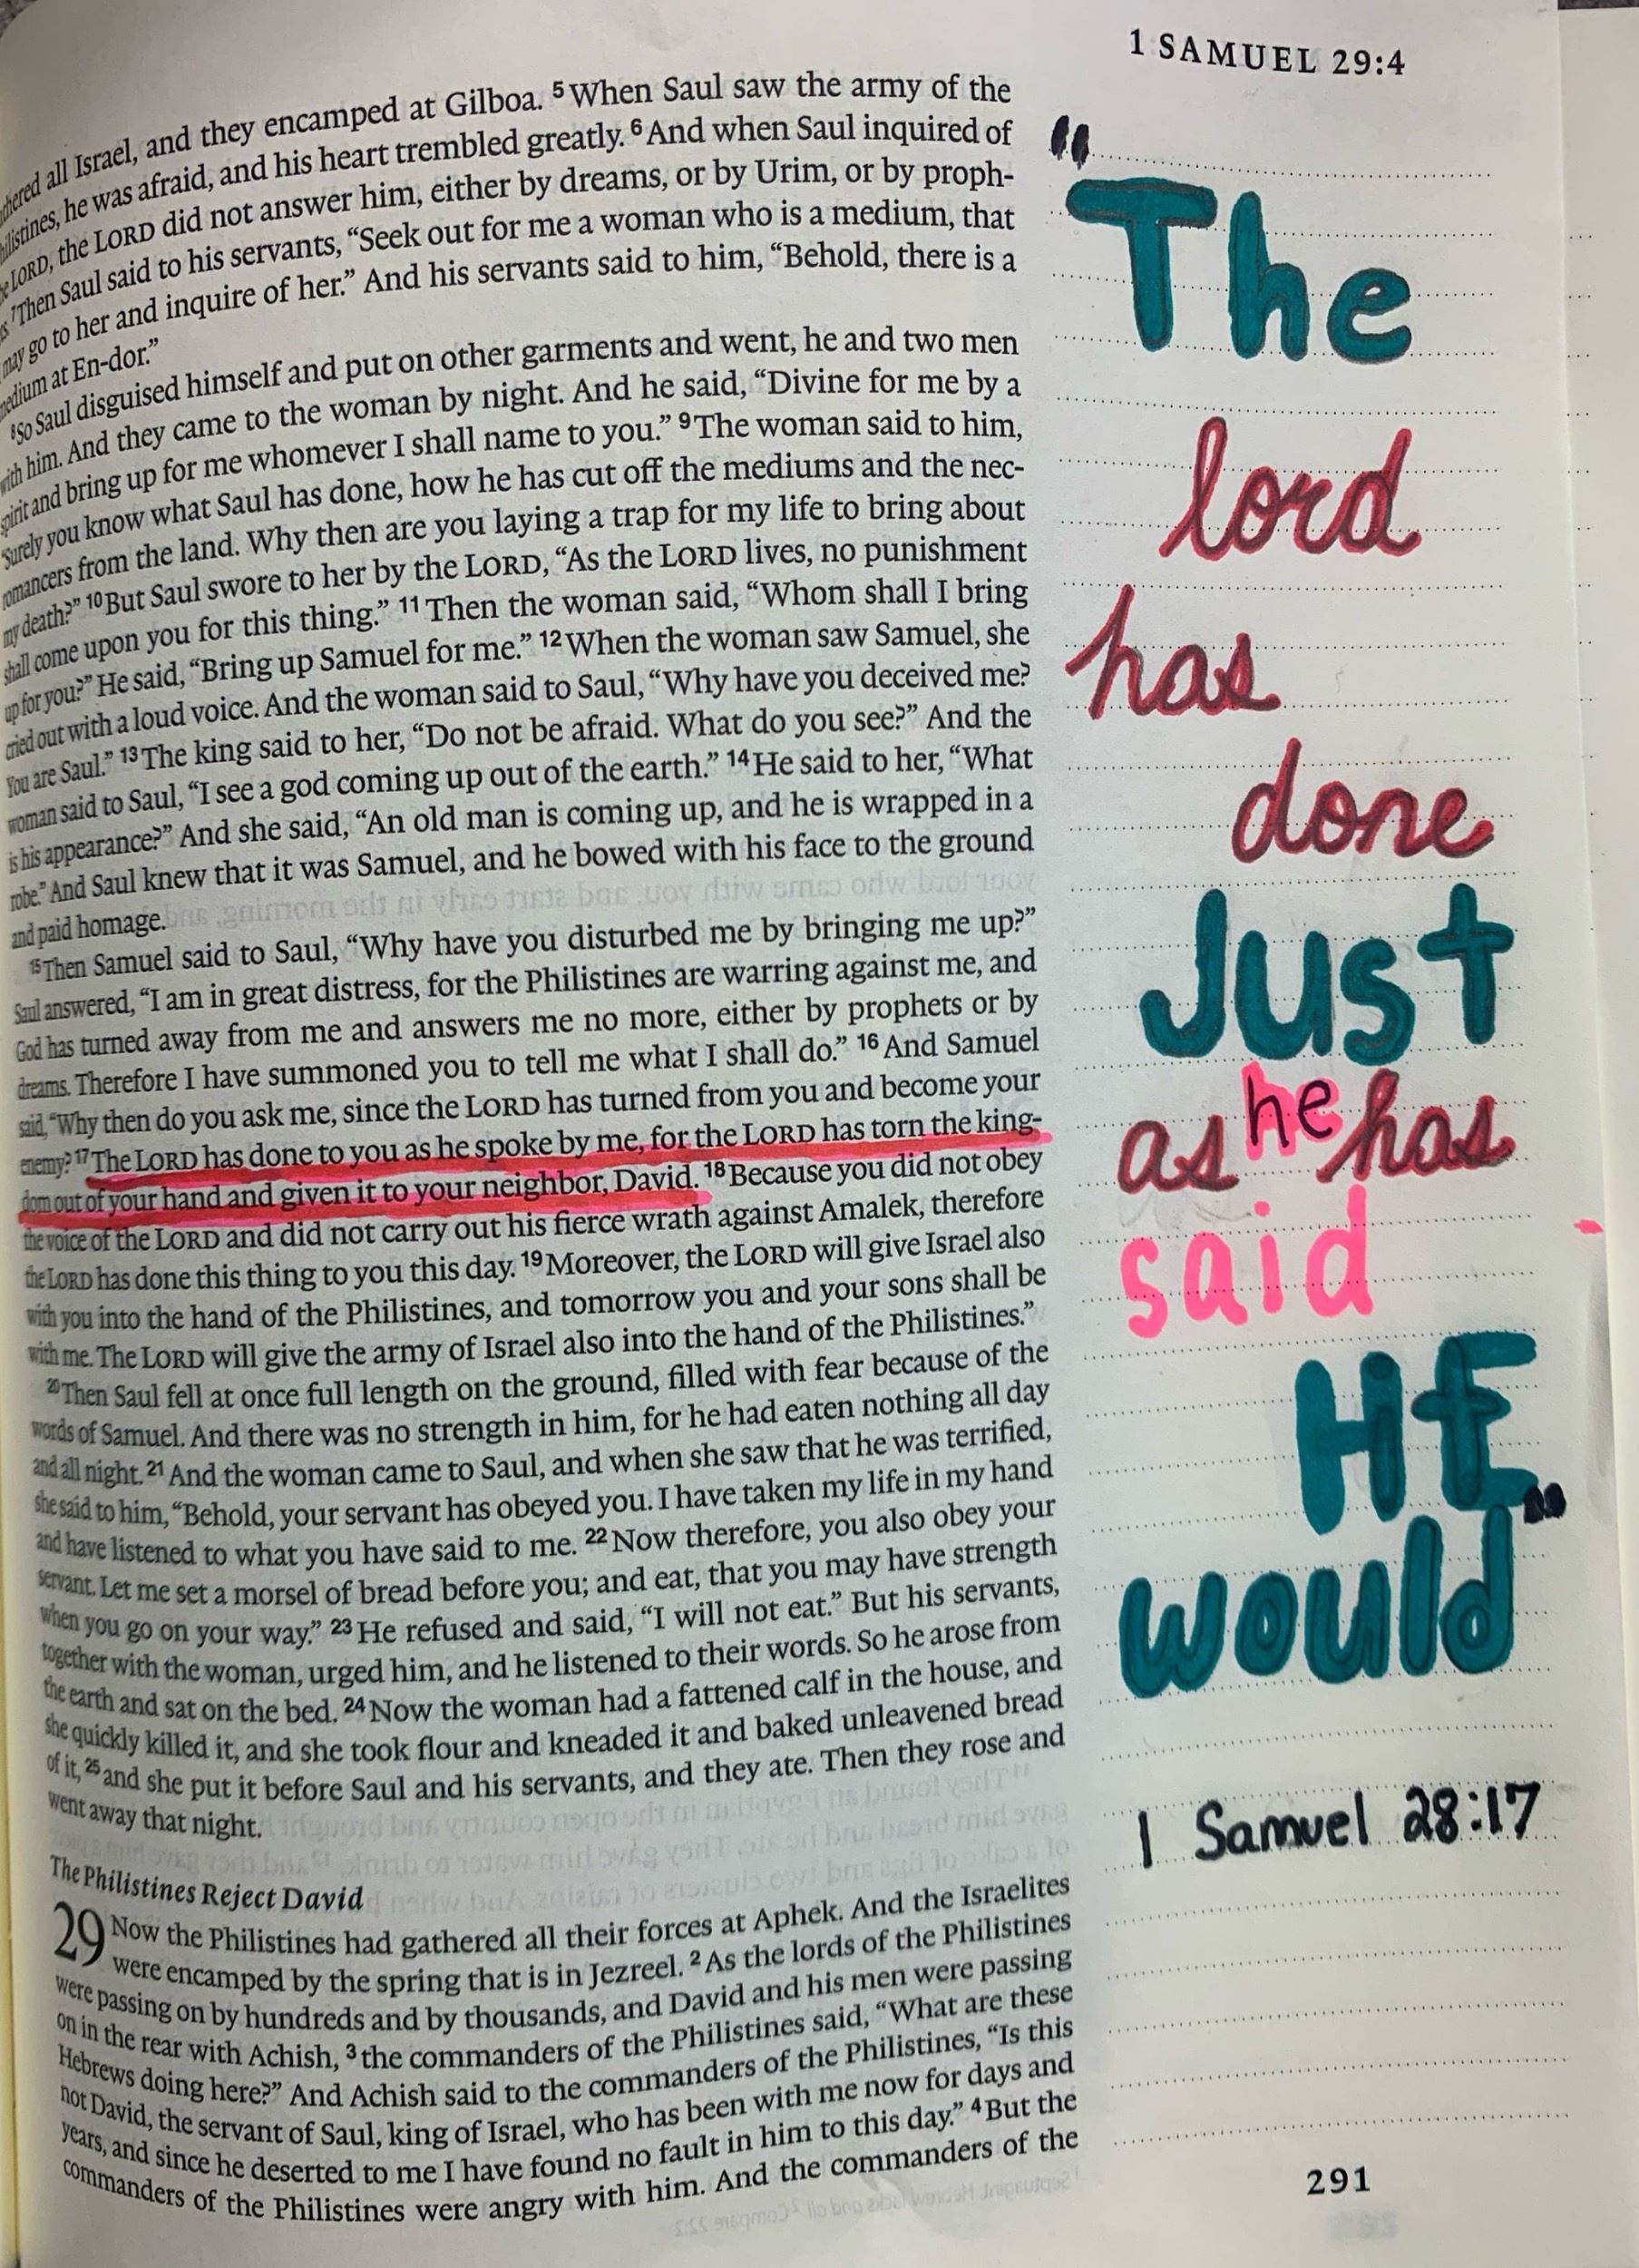 1 SAMUEL 29:4
thered all Israel, and they encamped at Gilboa. 5 When Saul saw the army of the
ilistines, he was afraid, and his heart trembled greatly. 6 And when Saul inquired of
e LORD, the LORD did not answer him, either by dreams, or by Urim, or by proph-
s. 7 Then Saul said to his servants, “Seek out for me a woman who is a medium, that
may go to her and inquire of her.” And his servants said to him, “Behold, there is a
edium at En-dor.”
8 So Saul disguised himself and put on other garments and went, he and two men
with him. And they came to the woman by night. And he said, “Divine for me by a
spirit and bring up for me whomever I shall name to you.” 9 The woman said to him,
“Surely you know what Saul has done, how he has cut off the mediums and the nec-
romancers from the land. Why then are you laying a trap for my life to bring about
my death?” 10 But Saul swore to her by the LORD, “As the LORD lives, no punishment
shall come upon you for this thing.” 11 Then the woman said, “Whom shall I bring
up for you?” He said, “Bring up Samuel for me.” 12 When the woman saw Samuel, she
cried out with a loud voice. And the woman said to Saul, “Why have you deceived me?
You are Saul.” 13 The king said to her, “Do not be afraid. What do you see?” And the
woman said to Saul, “I see a god coming up out of the earth.” 14 He said to her, “What
is his appearance?” And she said, “An old man is coming up, and he is wrapped in a
robe.” And Saul knew that it was Samuel, and he bowed with his face to the ground
and paid homage.
15 Then Samuel said to Saul, “Why have you disturbed me by bringing me up?”
Saul answered, “I am in great distress, for the Philistines are warring against me, and
God has turned away from me and answers me no more, either by prophets or by
dreams. Therefore I have summoned you to tell me what I shall do.” 16 And Samuel
said, “Why then do you ask me, since the LORD has turned from you and become your
enemy? 17 The LORD has done to you as he spoke by me, for the LORD has torn the king-
dom out of your hand and given it to your neighbor, David. 18 Because you did not obey
the voice of the LORD and did not carry out his fierce wrath against Amalek, therefore
the LORD has done this thing to you this day. 19 Moreover, the LORD will give Israel also
with you into the hand of the Philistines, and tomorrow you and your sons shall be
with me. The LORD will give the army of Israel also into the hand of the Philistines.”
20 Then Saul fell at once full length on the ground, filled with fear because of the
words of Samuel. And there was no strength in him, for he had eaten nothing all day
and all night. 21 And the woman came to Saul, and when she saw that he was terrified,
she said to him, “Behold, your servant has obeyed you. I have taken my life in my hand
and have listened to what you have said to me. 22 Now therefore, you also obey your
servant. Let me set a morsel of bread before you; and eat, that you may have strength
when you go on your way.” 23 He refused and said, “I will not eat.” But his servants,
together with the woman, urged him, and he listened to their words. So he arose from
the earth and sat on the bed. 24 Now the woman had a fattened calf in the house, and
she quickly killed it, and she took flour and kneaded it and baked unleavened bread
of it, 25 and she put it before Saul and his servants, and they ate. Then they rose and
went away that night.
The Philistines Reject David
29 Now the Philistines had gathered all their forces at Aphek. And the Israelites
were encamped by the spring that is in Jezreel. 2 As the lords of the Philistines
were passing on by hundreds and by thousands, and David and his men were passing
on in the rear with Achish, 3 the commanders of the Philistines said, “What are these
Hebrews doing here?” And Achish said to the commanders of the Philistines, “Is this
not David, the servant of Saul, king of Israel, who has been with me now for days and
years, and since he deserted to me I have found no fault in him to this day.” 4 But the
commanders of the Philistines were angry with him. And the commanders of the
"The
lord
has
done
Just
as he has
said
HE
would"
1 Samuel 28:17
291